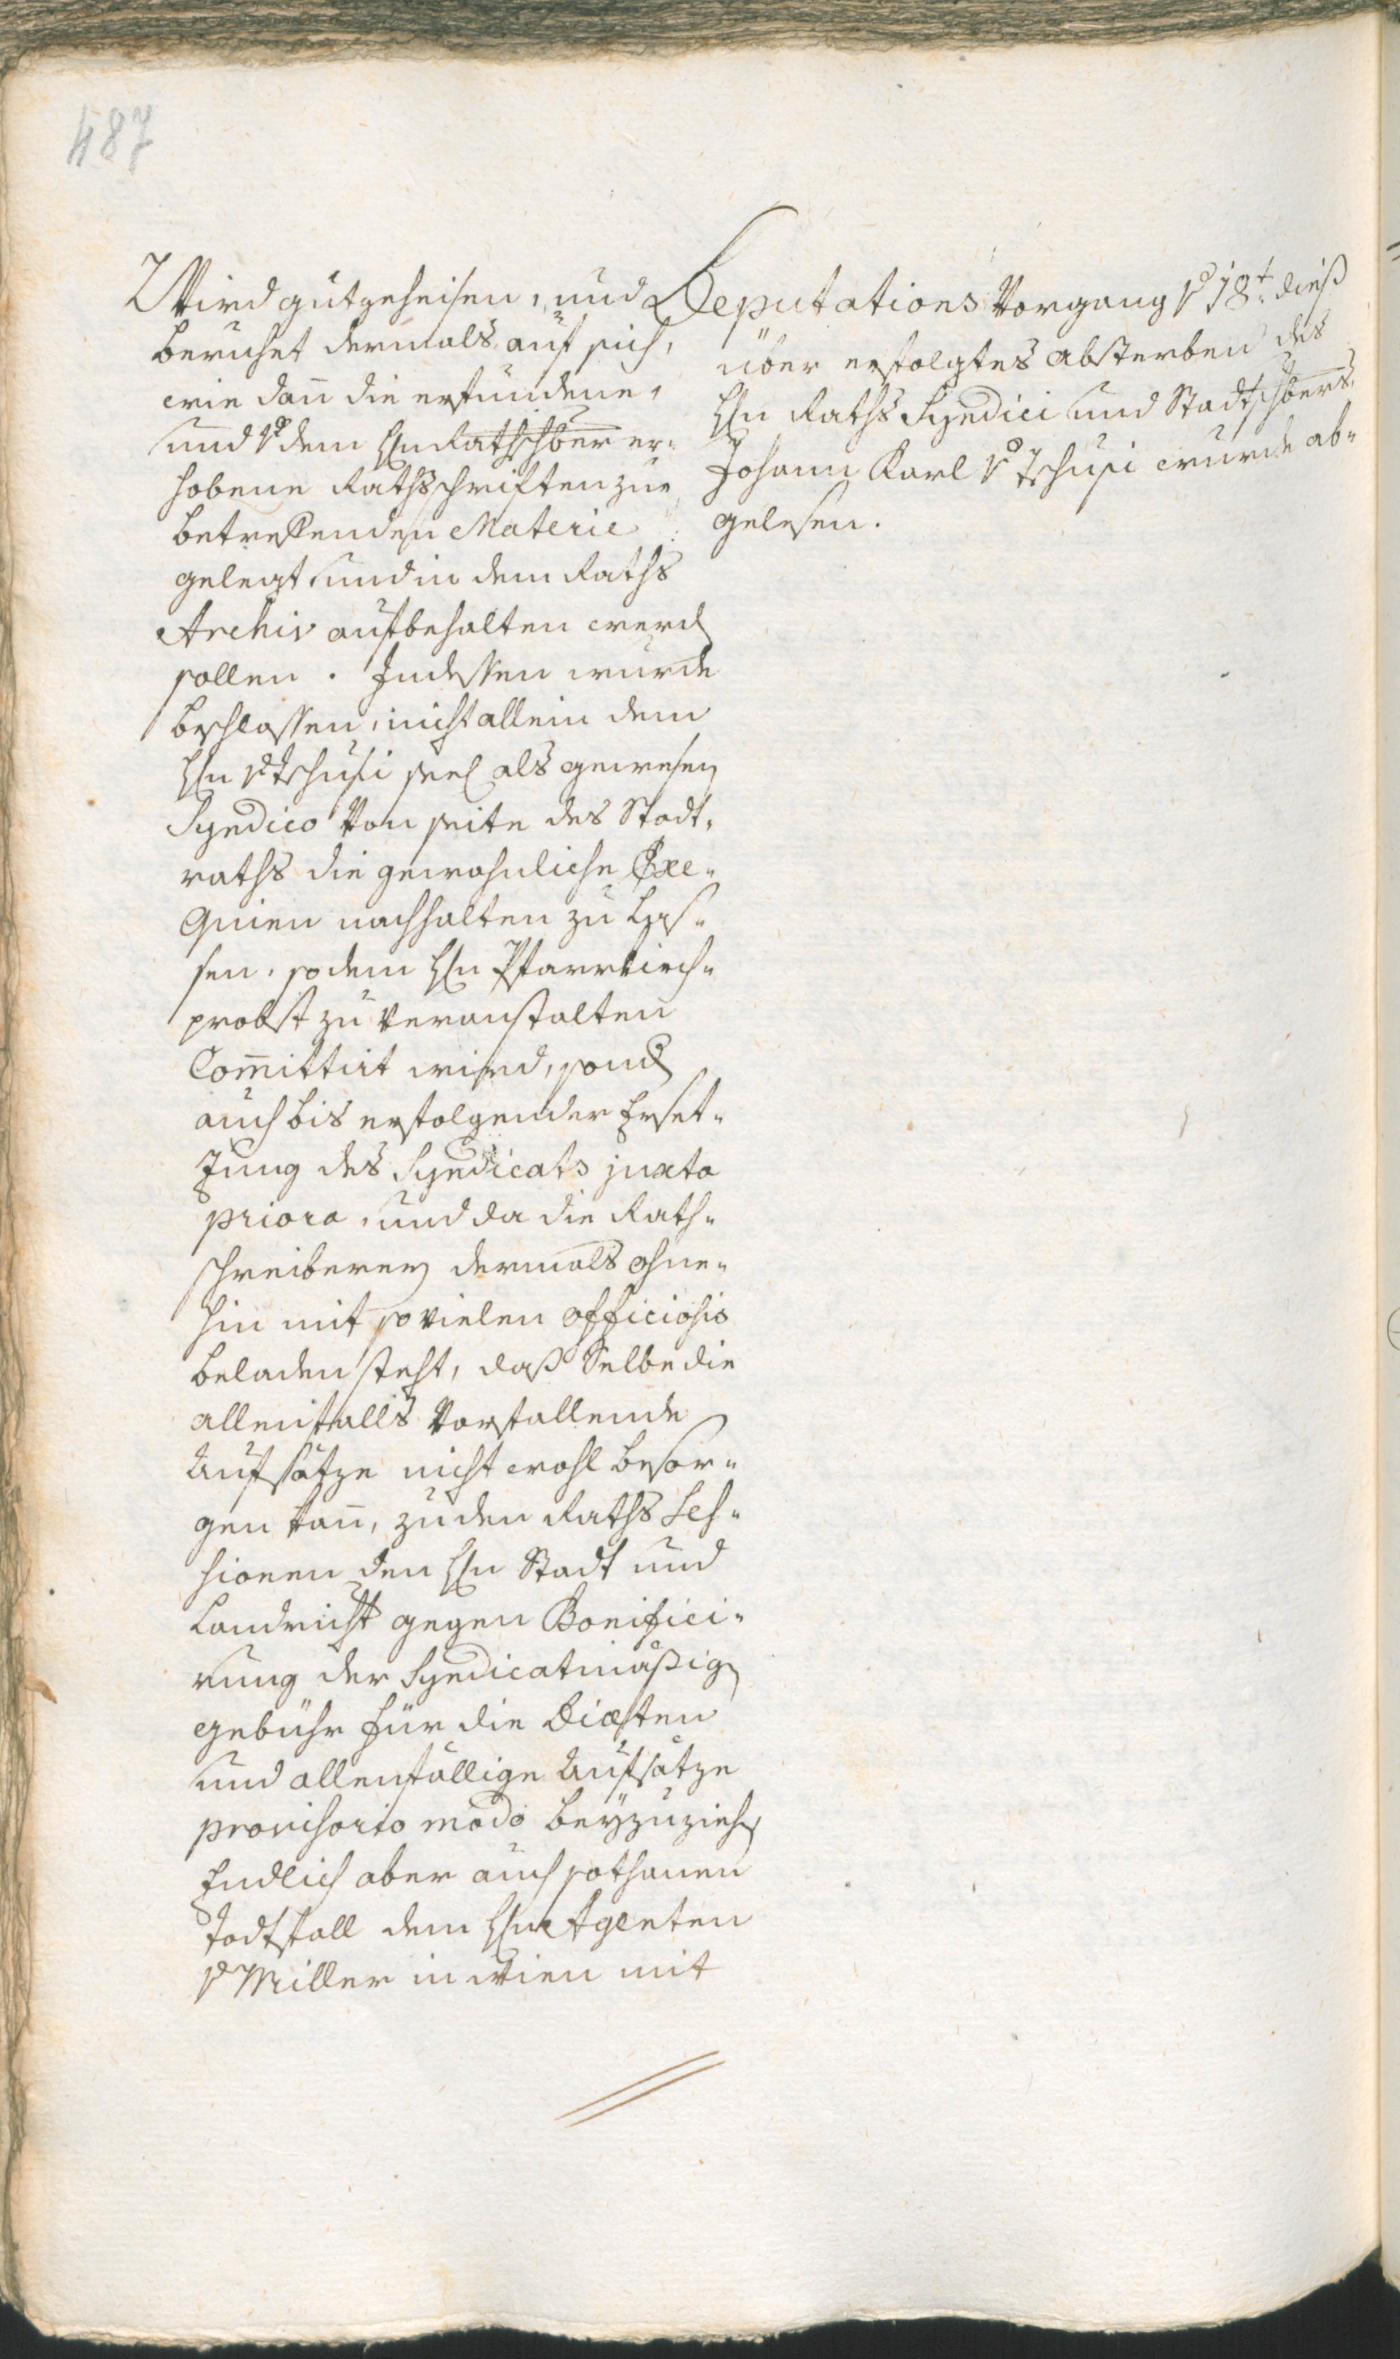 487
Wird gutgeheisen, und
beruhet dermals auf sich,
wie dan̄ die erfundene,
und v dem Hn Rathschber er-
hobene Rathsschriften zur
betreffenden Materie
gelegt und in dem Raths
Archiv aufbehalten werd
sollen. Indessen wurde
beschlossen, nicht allein dem
Hn v Tschusi seel als gewesen
Syndico von seite des Stadt-
raths die gewohnliche Exe-
quien nachhalten zu las-
sen, so dem Hn Pfarrkirch-
probst zu veranstalten
Com̄ittirt wird, sond
auch bis erfolgender Erset-
zung des Syndicats juxta
priora, und da die Rath-
schreiberey dermals ohne-
hin mit so vielen officiosis
beladen steht, daß Selbe die
allenfalls vorfallende
Aufsätze nicht wohl besor-
gen kan̄, zu den Raths Ses-
sionen den Hn Stadt und
Landricht gegen Bonifici-
rung der Syndicatmäßig
gebühr für die Diaeten
und allenfällige Aufsätze
provisorio modo beÿzuzieh
Endlich aber auch sothanen
Todtfall dem Hn Agenten
v Miller in Wien mit
Deputations Vorgang v 18t. dieß
über erfolgtes absterben des
Hn Raths Syndici und Stadtschbers
Johann Karl v Tschusi wurde ab-
gelesen.